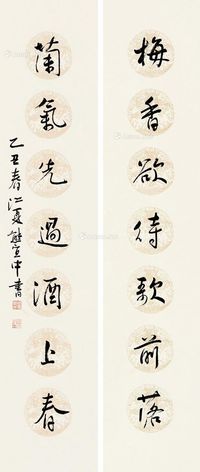 梅香欲待歌前落
蘭氣先過酒上春
乙丑春江夏熊宜中書